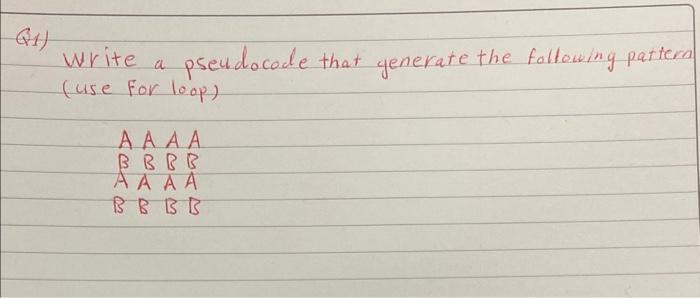 Q1)
write a pseudocode that generate the following pattern
(use For loop)
A A A A
B B B B
A A A A
B B B B